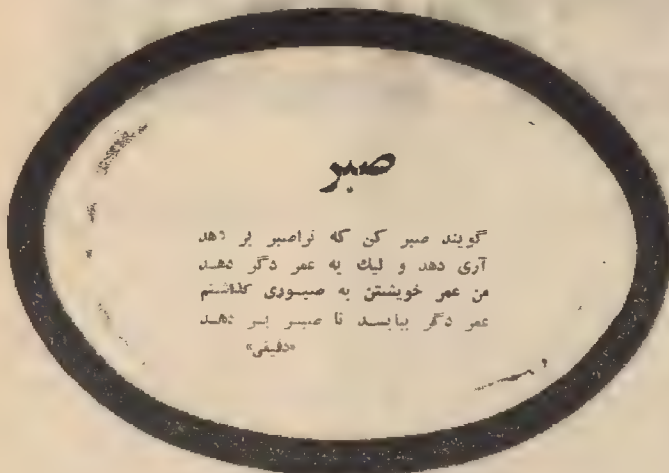 صبر
گویند صبر کن که تراصبر بر دهد
آری دهد و لیك به عمر دگر دهد
من عمر خویشتن به صبوری گذاشتم
عمر دگر بباید تا صبر بر دهد
«دقیقی»